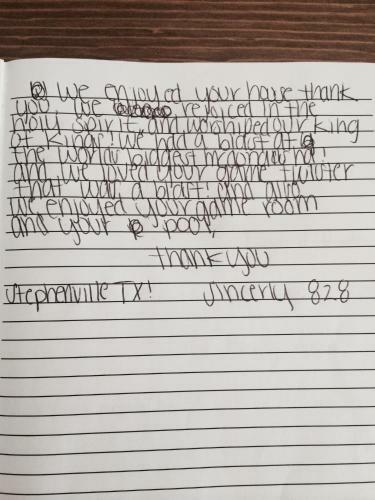 We enjoyed your house thank
you, we rejoiced in the
Holy Spirit and worshiped our King
of Kings! we had a blast at
the worlds biggest
and we loved your game
that was a blast! and also
we enjoyed your game room
and your pool,
thank you
Stephenville TX! Sincerly 828